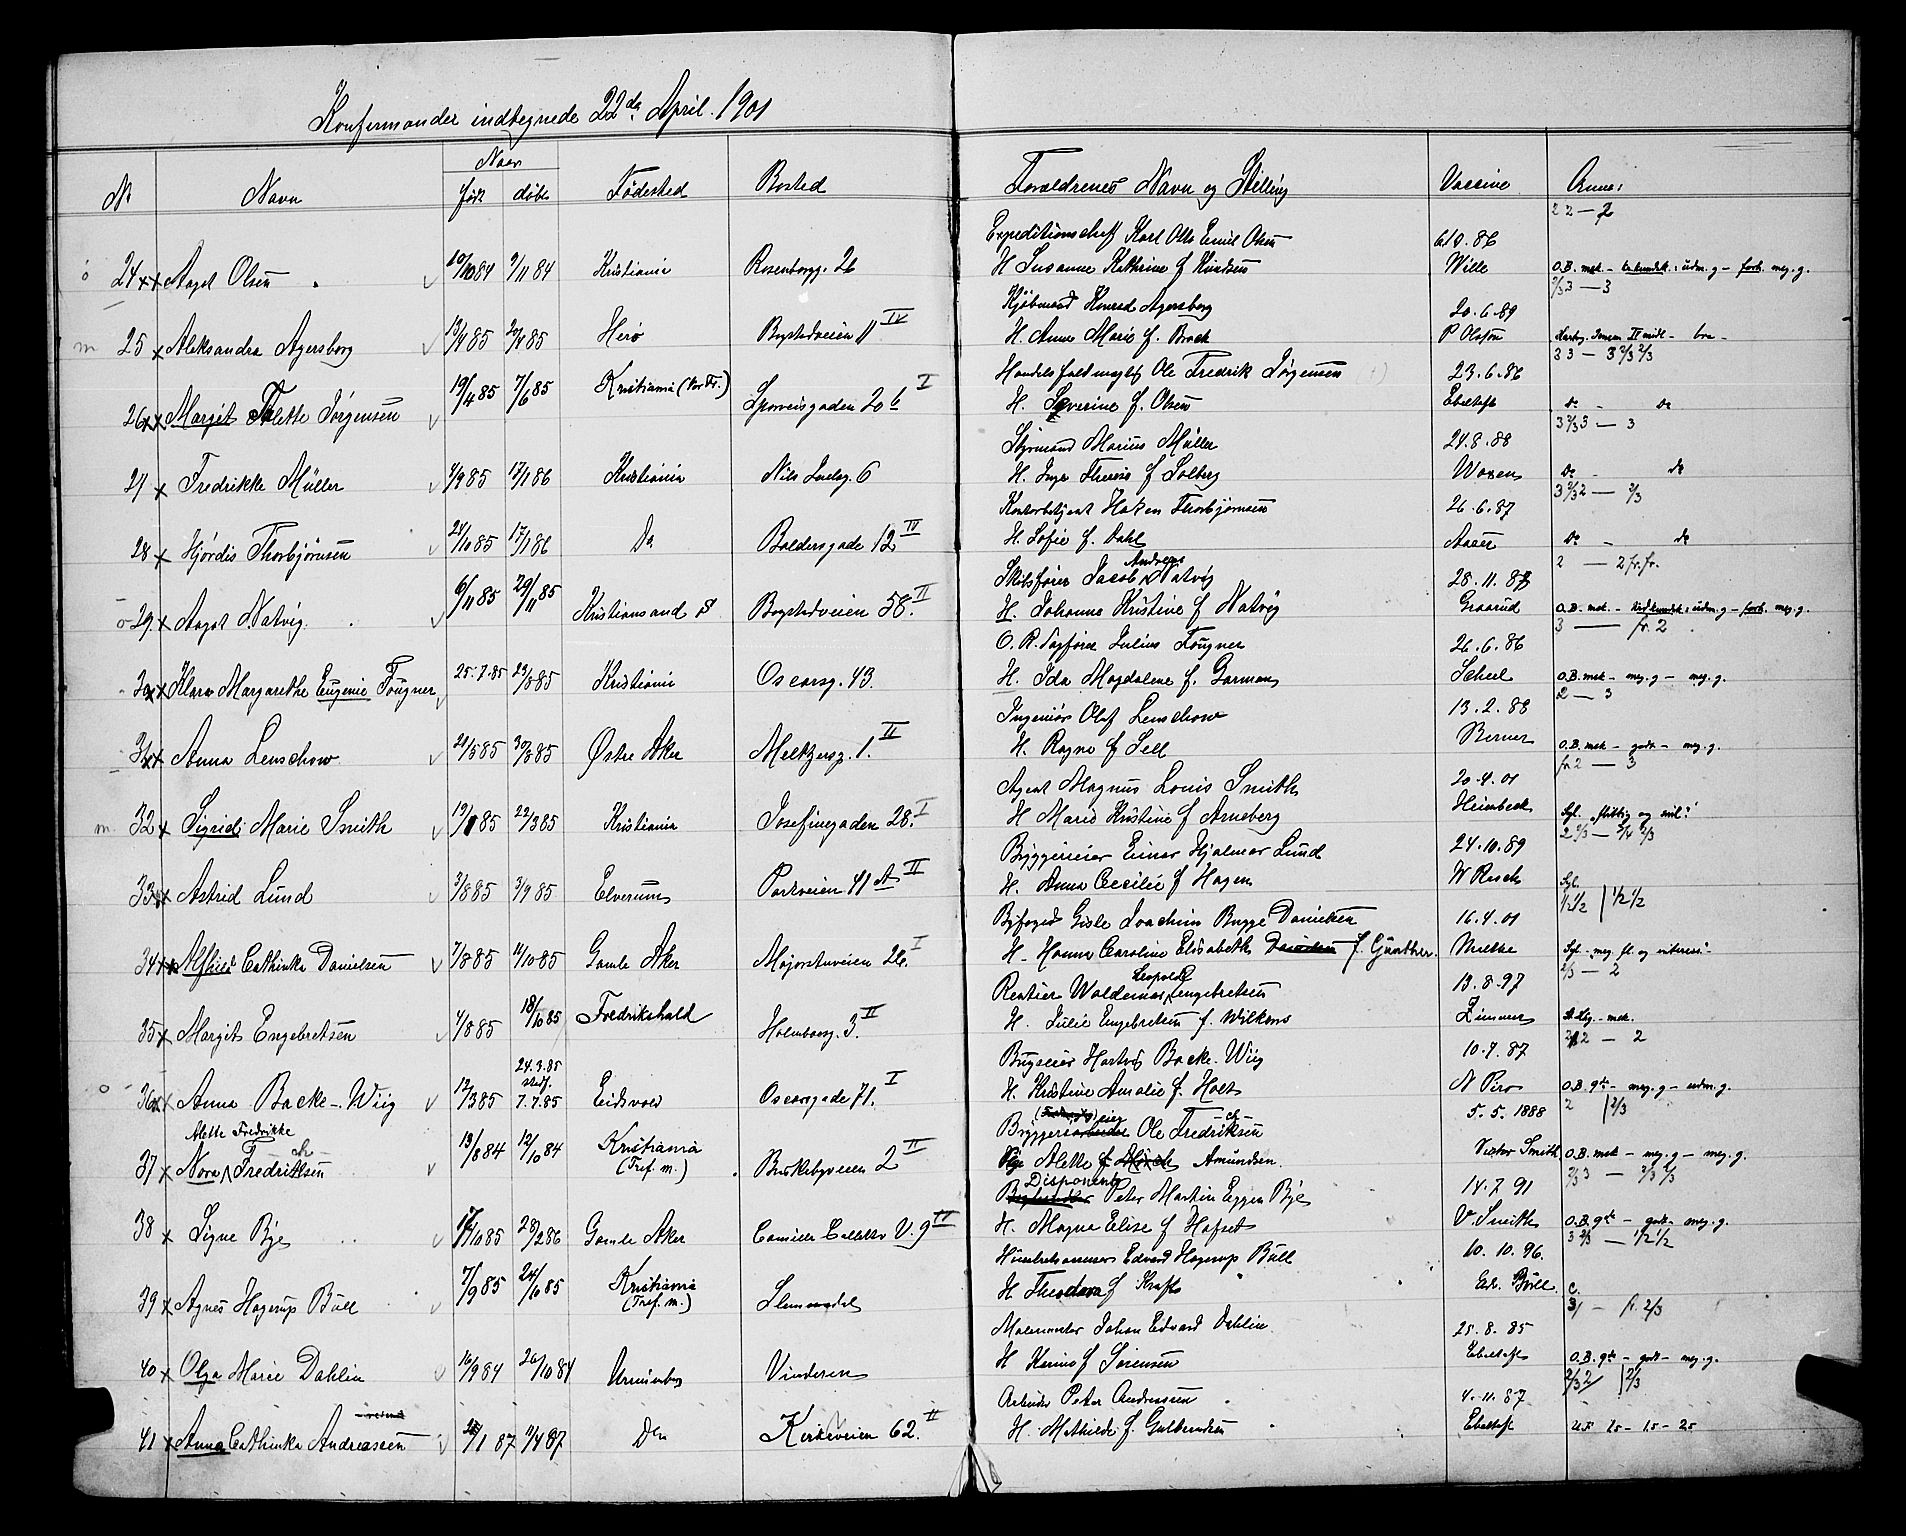 Konfirmander indtegnede 22de April. 1901
No Navn Naar født døbt Fødested Bosted Forældrenes Navn og Stilling Vaccine Anm:
22 — 2
Expeditionschef Karl Otto Emil Olsen 6.10.86
24 Aagot Olsen 10/10 84 9/11 84 Kristiania Rosenborgg. 26 H. Susanne Kathrine f. Knudsen Wille O.B. mek - udm. g - forb. meg. g.
2/3 3 — 3
Kjøbmand Konrad Agersborg 20.6.89
m 25 Aleksandra Agersborg 13/4 85 20/4 85 Herø Bogstadveien 11 IV H. Anne Marie f. Brock P Olsson II midl - bra -
33 — 3 2/3 2/3
Handelsfuldmægt. Ole Fredrik Jørgensen 23.6.86
26 Margit Talette Jørgensen 19/4 85 7/6 85 Kristiania (Vor Fr.) Sporveisgaden 20 b I H. Severine f. Olsen Ebeltoft Do - Do
3 2/3 3 — 3
Styrmand Marius Müller 24.8.88
27 Fredrikke Müller 4/9 85 17/1 86 Kristiania Nils Juelsg. 6 H. Inga Therese f. Solberg Woxen Do - Do
3 2/3 2 — 2/3
Kontorbetjent Hakon Thorbjørnsen 26.6.87
28 Hjørdis Thorbjørnsen 24/10 85 17/1 86 Do Baldersgade 12 IV H. Sofie f. Dahl Aaser Do - Do
2 — 2 fr. fr.
Skibsfører Jacob Andreas Natvig 28.11.87
29 Aagot Natvig 6/11 85 29/11 85 Kristiansand S Bogstadveien 58. II H. Johanne Kristine f. Natvig Graarud O.B. mek. - udm. g - forb. meg. g.
3 — fr. 2
O.R. Sagfører Julius Fougner 26.6.86
30 Klara Margarethe Eugenie Fougner 25.7.85 23/8 85 Kristiania Oscarsg. 43. H. Ida Magdalene f. Garmann Scheel O.B. mek - meg. g - meg. g.
2 — 3
Ingeniør Olaf Lenschow 13.2.88
31 Anna Lenschow 21/5 85 30/8 85 Østre Aker Meltzersg. 1. II H. Ragna f. Sell Berner O.B. mek - godt - meg. g.
fr 2 — 3
Agent Magnus Louis Smith 20.4.01
m. 32 Sigrid Marie Smith 19/1 85 22/3 85 Kristiania Josefinegaden 28. I H. Marie Kristine f. Arneberg Heimbeck Syl. flittig og snil!
2 2/3 — 3/4 2/3
Bryggerieier Einar Hjalmar Lund 24.10.89
33 Astrid Lund 3/8 85 3/9 85 Elverum Parkveien 41 A II H. Anna Cecilie f. Hagen W Resch Syl.
1/2 1/2 | 1/2 1/2
Byfoged Gisle Joachim Bugge Danielsen 16.4.01
34 Cathinka Danielsen 7/8 85 4/10 85 Gamle Aker Majorstuveien 26. I H. Hanna Caroline Elisabeth f. Günther. Mielke Syl. meg. fl. og interess.
2/3 — 2
Rentier Waldemar Leopold Engebretsen 13.8.97
35 Margit Engebretsen 4/8 85 18/10 85 Fredrikshald Holmborg. 3. II H. Julie Engebretsen f. Wilkens Zimmer mek.
2 — 2
Brugseier Hartvig Backe-Wiig 10.7.87
36 Anna Backe-Wiig 12/3 85 24.3.85 7.7.85 Eidsvold Oscarsgade 71. I H. Kristine Amalie f. Holst N Piro O.B. gto - meg. g - udm. g.
2 | 2/3
Bryggerieier Ole Fredriksen 5.5.1888
37 Nora Alette Fredrikke Fredriksen 13/8 84 12/10 84 Kristiania (Tref. m.) Briskebyveien 2 II Alette Amundsen. Victor Smith O.B. mek - meg. g - meg. g.
2/3 3 — 2/3 1/3
Disponent Peter Martin Eggen Bye 14.7.91
38 Signe Bye 17/10 85 28/2 86 Gamle Aker Camilla Colletts V. 9 IV H. Magna Elise f. Hafset V. Smith O.B. gto - godt - meg. g.
3 2/3 — 1/2 1/2
Edvard Hagerup Bull 10.10.96.
39 Agnes Hagerup Bull 7/9 85 24/10 85 Kristiania (Tref. m.) Slemmedal H Theodora f Kraft Edv. Bull.
3/1 - fr. 2/3
Malermester Johan Edvard Dahlin 25.8.85
40 Olga Marie Dahlin 16/9 84 26/10 84 Uranienborg Vinderen H Karine f Sørensen Ebeltoft O.B. gto - godt - meg. g.
2/3 2 | 2/3
Arbeider Peter Andreassen 4.11.87
41 Anna Cathinka Andreassen 25/1 87 11/4 87 Do Kirkeveien 62. II H. Mathilde f. Gulbrandsen Ebeltoft U.F. 25 - 15 - 25